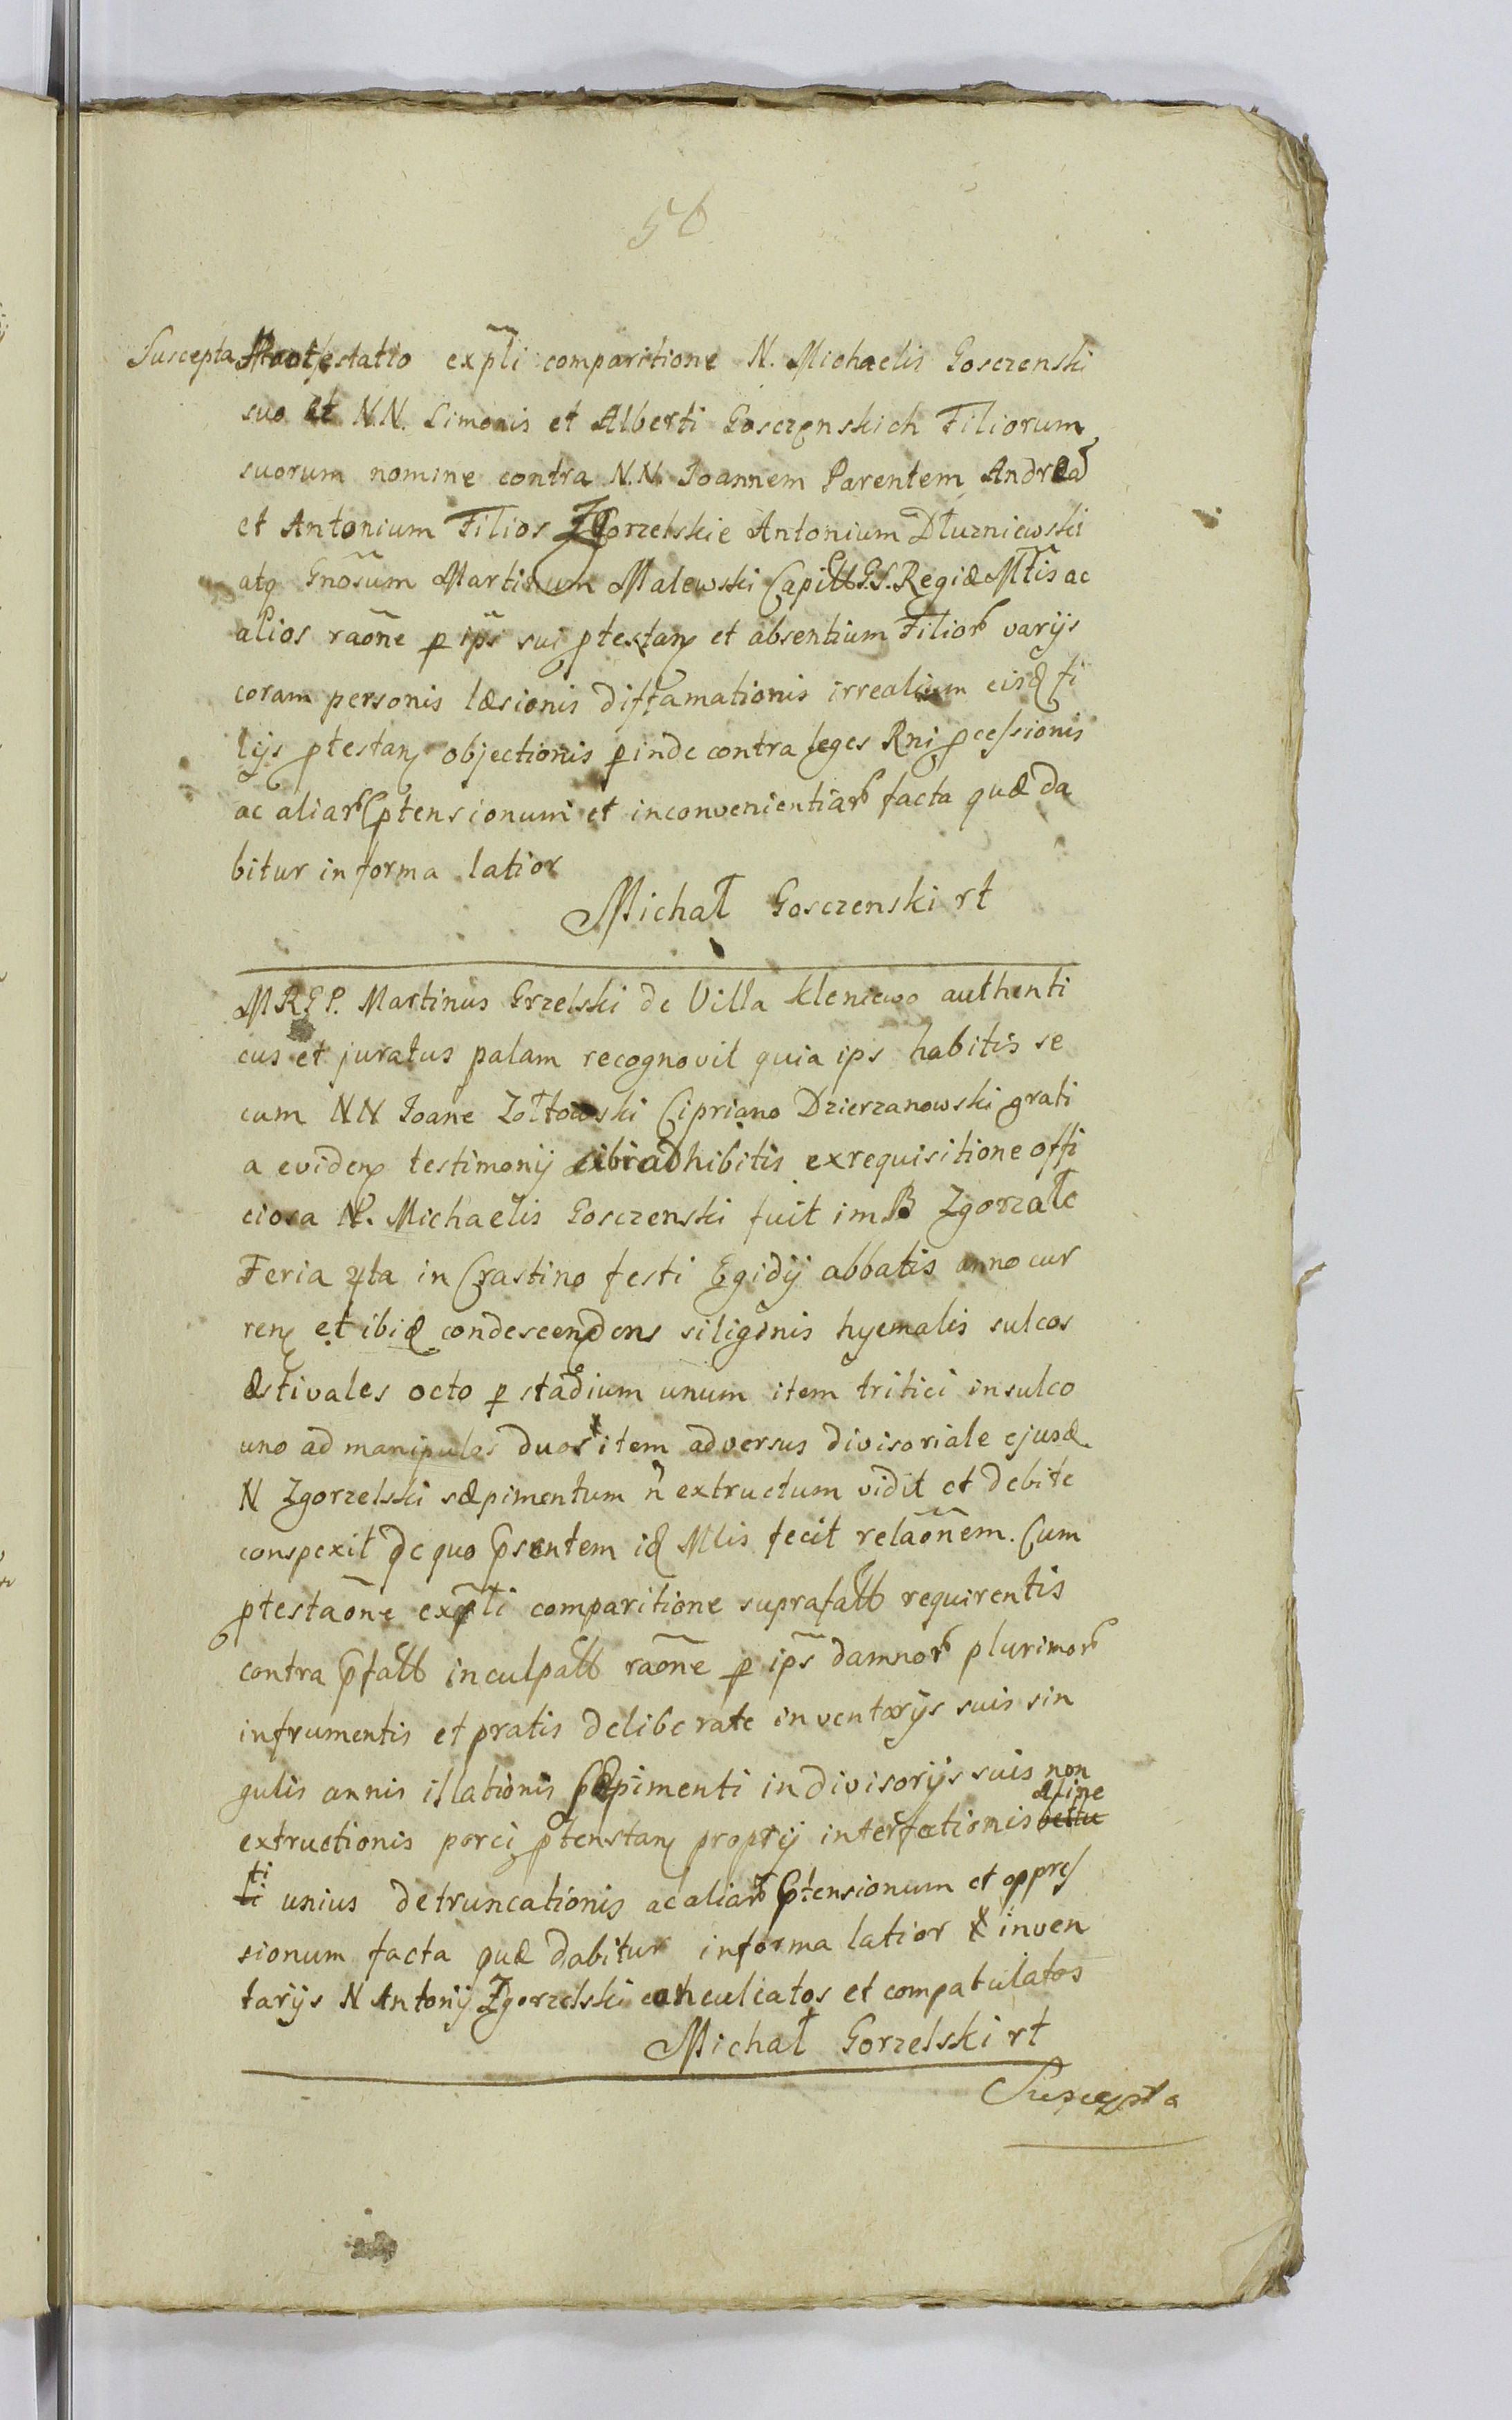 56
Suscepta Protestatio expl̃i comparitione N. Michaelis Gosczenski
suo et N.N. Simonis et Alberti Gosczenskich Filiorum
suorum nomine contra N.N. Joannem Parentem Andream
et Antonium Filios Zgorzelskie Antonium Dłuzniewski
atq Gnõsum Martinum Malewski Capitt S. Regiæ Mt̃is ac
alios raõne p ip̃s sui ptestanq et absentium Filior varijs
coram personis læsionis diffamationis irrealium eisd fi
lijs ptestanq objectionis pinde contra leges Rni pcessionis
ac aliar ptensionum et inconvenientiar facta quæ da
bitur in forma latior
Michał Gosczenski rt
MRGP. Martinus Grzelski de Villa Kleniewo authenti
cus et juratus palam recognovit quia ips habitis se
cum NN Joane Zołtowski Cipriano Dzierzanowski grati
a evidenq testimonij sibi adhibitis ex requisitione offi
ciosa N. Michaelis Gosczenski fuit in B Zgorzałe
Feria 4ta in Crastino festi Egidij abbatis anno cur
renq et ibid condescendens siliginis hyemalis sulcos
æstivales octo p stadium unum item tritici in sulco
uno ad manipulos duos x item adversus divisoriale ejusd
N Zgorzelski sæpimentum ñ extructum vidit et debite
conspexit de quo psentem id Mlis fecit relaõnem. Cum
ptestaõne expl̃i comparitione suprafatt requirentis
contra pfatt inculpatt raõne p ip̃s damnor plurimor
in frumentis et pratis deliberate inventorijs suis sin
gulis annis illationis sæpimenti in divisorijs suis non
extructionis porci ptenstanq proprij interfectionis
ti unius detruncationis ac aliar ptensionum et oppres
sionum facta quæ dabitur in forma latior x inven
tarijs N Antonij Zgorzelski conculcatos et compabulatos
Michał Gorzelski rt
Suscepta